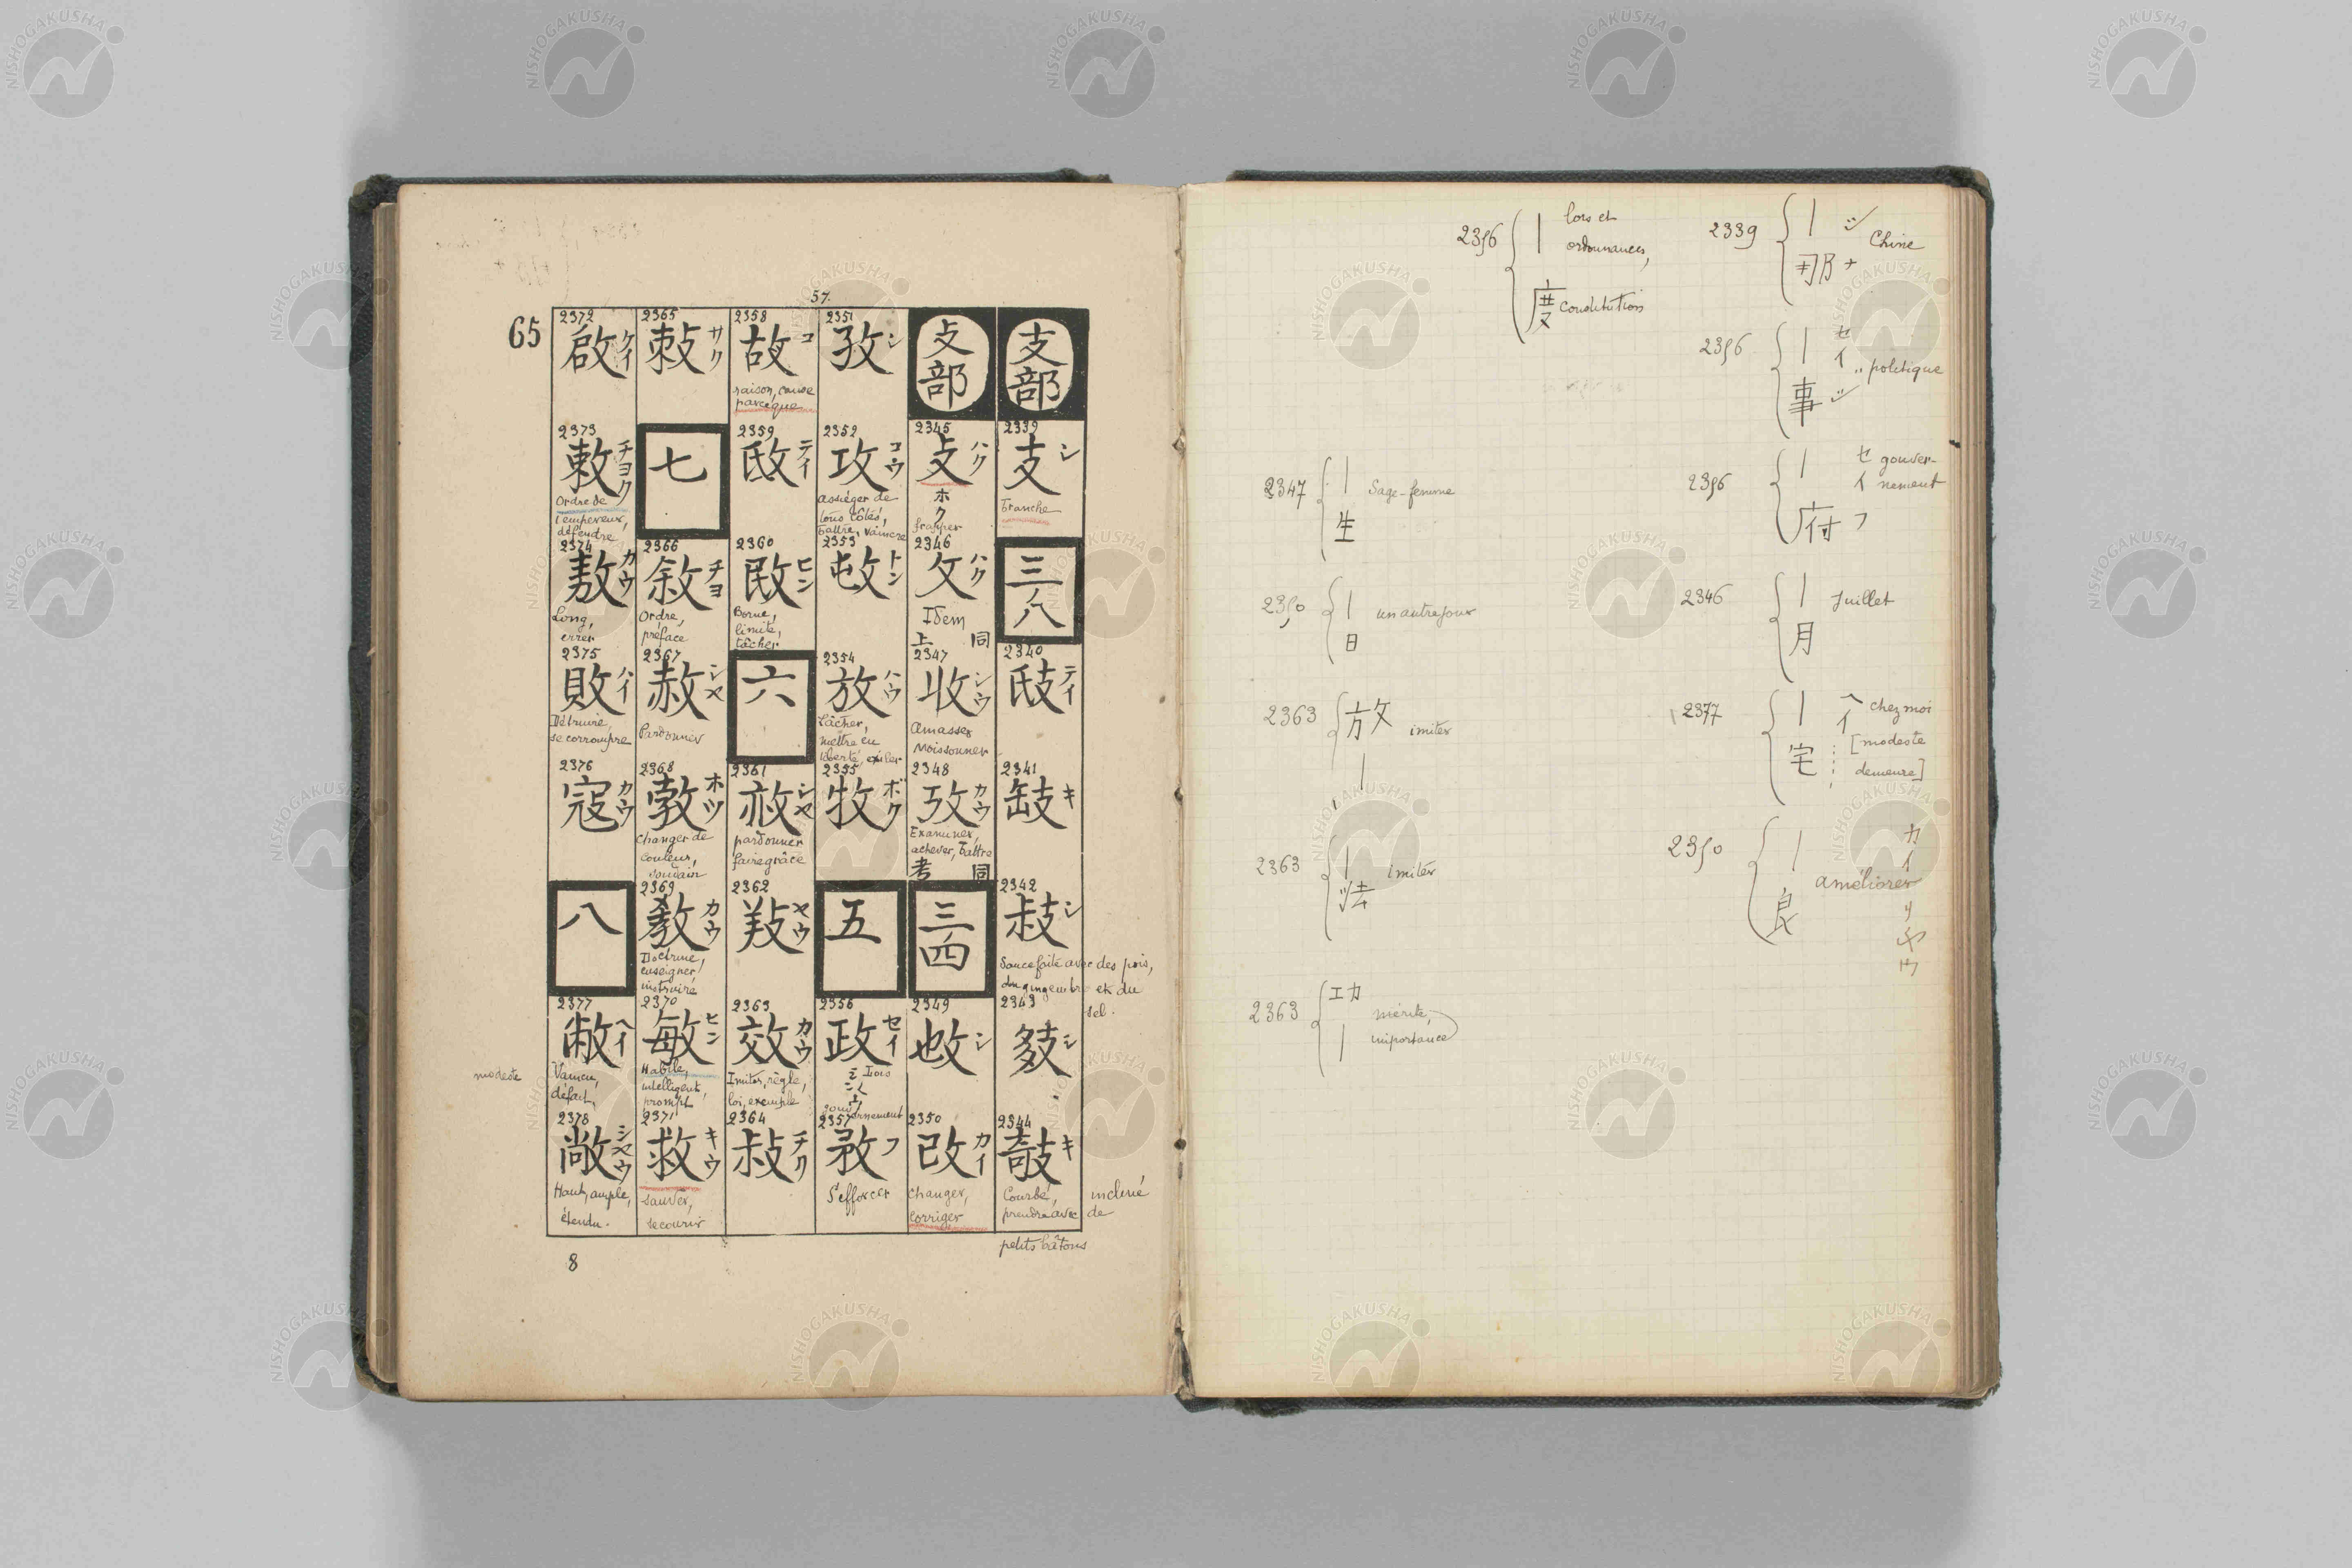 57.
65
支部
2339
支 シ
branche
三八
2340
𢻃 テイ
2341
キ
2342
シ
Sauce faite avec des pois,
du gingembre et du
sel.
2343
シ
2344
攲 キ
Courbé, incliné
prendre avec de
petits bâtons
攴部
2345
攴 ハク
ホク
frapper
2346
攵 ハク
Idem
同上
2347
收 シウ
Amasser
Moissonner
2348
攷 カウ
Examiner,
achever, battre
同考
三四
2349
𢻱 シ
2350
改 カイ
changer,
corriger
2351
孜 シ
2352
攻 コウ
assiéger de
tous côtés,
battre, vaincre
2353
トン
2354
放 ハウ
Lâcher,
mettre en
liberté, exiler
2355
牧 ボク
五
2356
政 セイ
Lois
gouvernement
2357
敄 フ
S'efforcer
2358
故 コ
raison, cause
parceque
2359
テイ
2360
敃 ヒン
Borne,
limite,
tâcher
六
2361
シヤ
pardonner
faire grâce
2362
ヤウ
2363
效 カウ
Imiter, règle,
loi, exemple
2364
チク
2365
敕 サク
七
2366
敘 チヨ
Ordre,
préface
2367
赦 シヤ
Pardonner
2368
敦 ホツ
changer de
couleur,
soudain
2369
敎 カウ
Doctrine,
enseigner,
instruire
2370
敏 ヒン
Habile,
intelligent,
prompt
2371
救 キウ
sauver,
secourir
2372
啟 ケイ
2373
敕 チヨク
Ordre de
l'empereur,
défendre
2374
敖 カウ
Long,
errer
2375
敗 ハイ
Détruire,
se corrompre
2376
寇 カウ
八
2377
敝 ヘイ
Vaincu,
défait,
modeste
2378
敞 シヤウ
Haut, ample,
étendu.
8
2339
| シ
那 ナ
Chine
2356
| セイ
事 ジ
politique
2356
| セイ
府 フ
gouver-
nement
2346
|
月
Juillet
2377
| ヘイ
宅
chez moi
[modeste
demeure]
2350
| カイ
良 リヤウ
améliorer
2356
|
度
lois et
ordonnances,
constitution
2347
|
生
Sage-femme
2350
|
日
un autre jour
2363
放
|
imiter
2363
|
法
imiter
2363
功
|
mérite,
importance